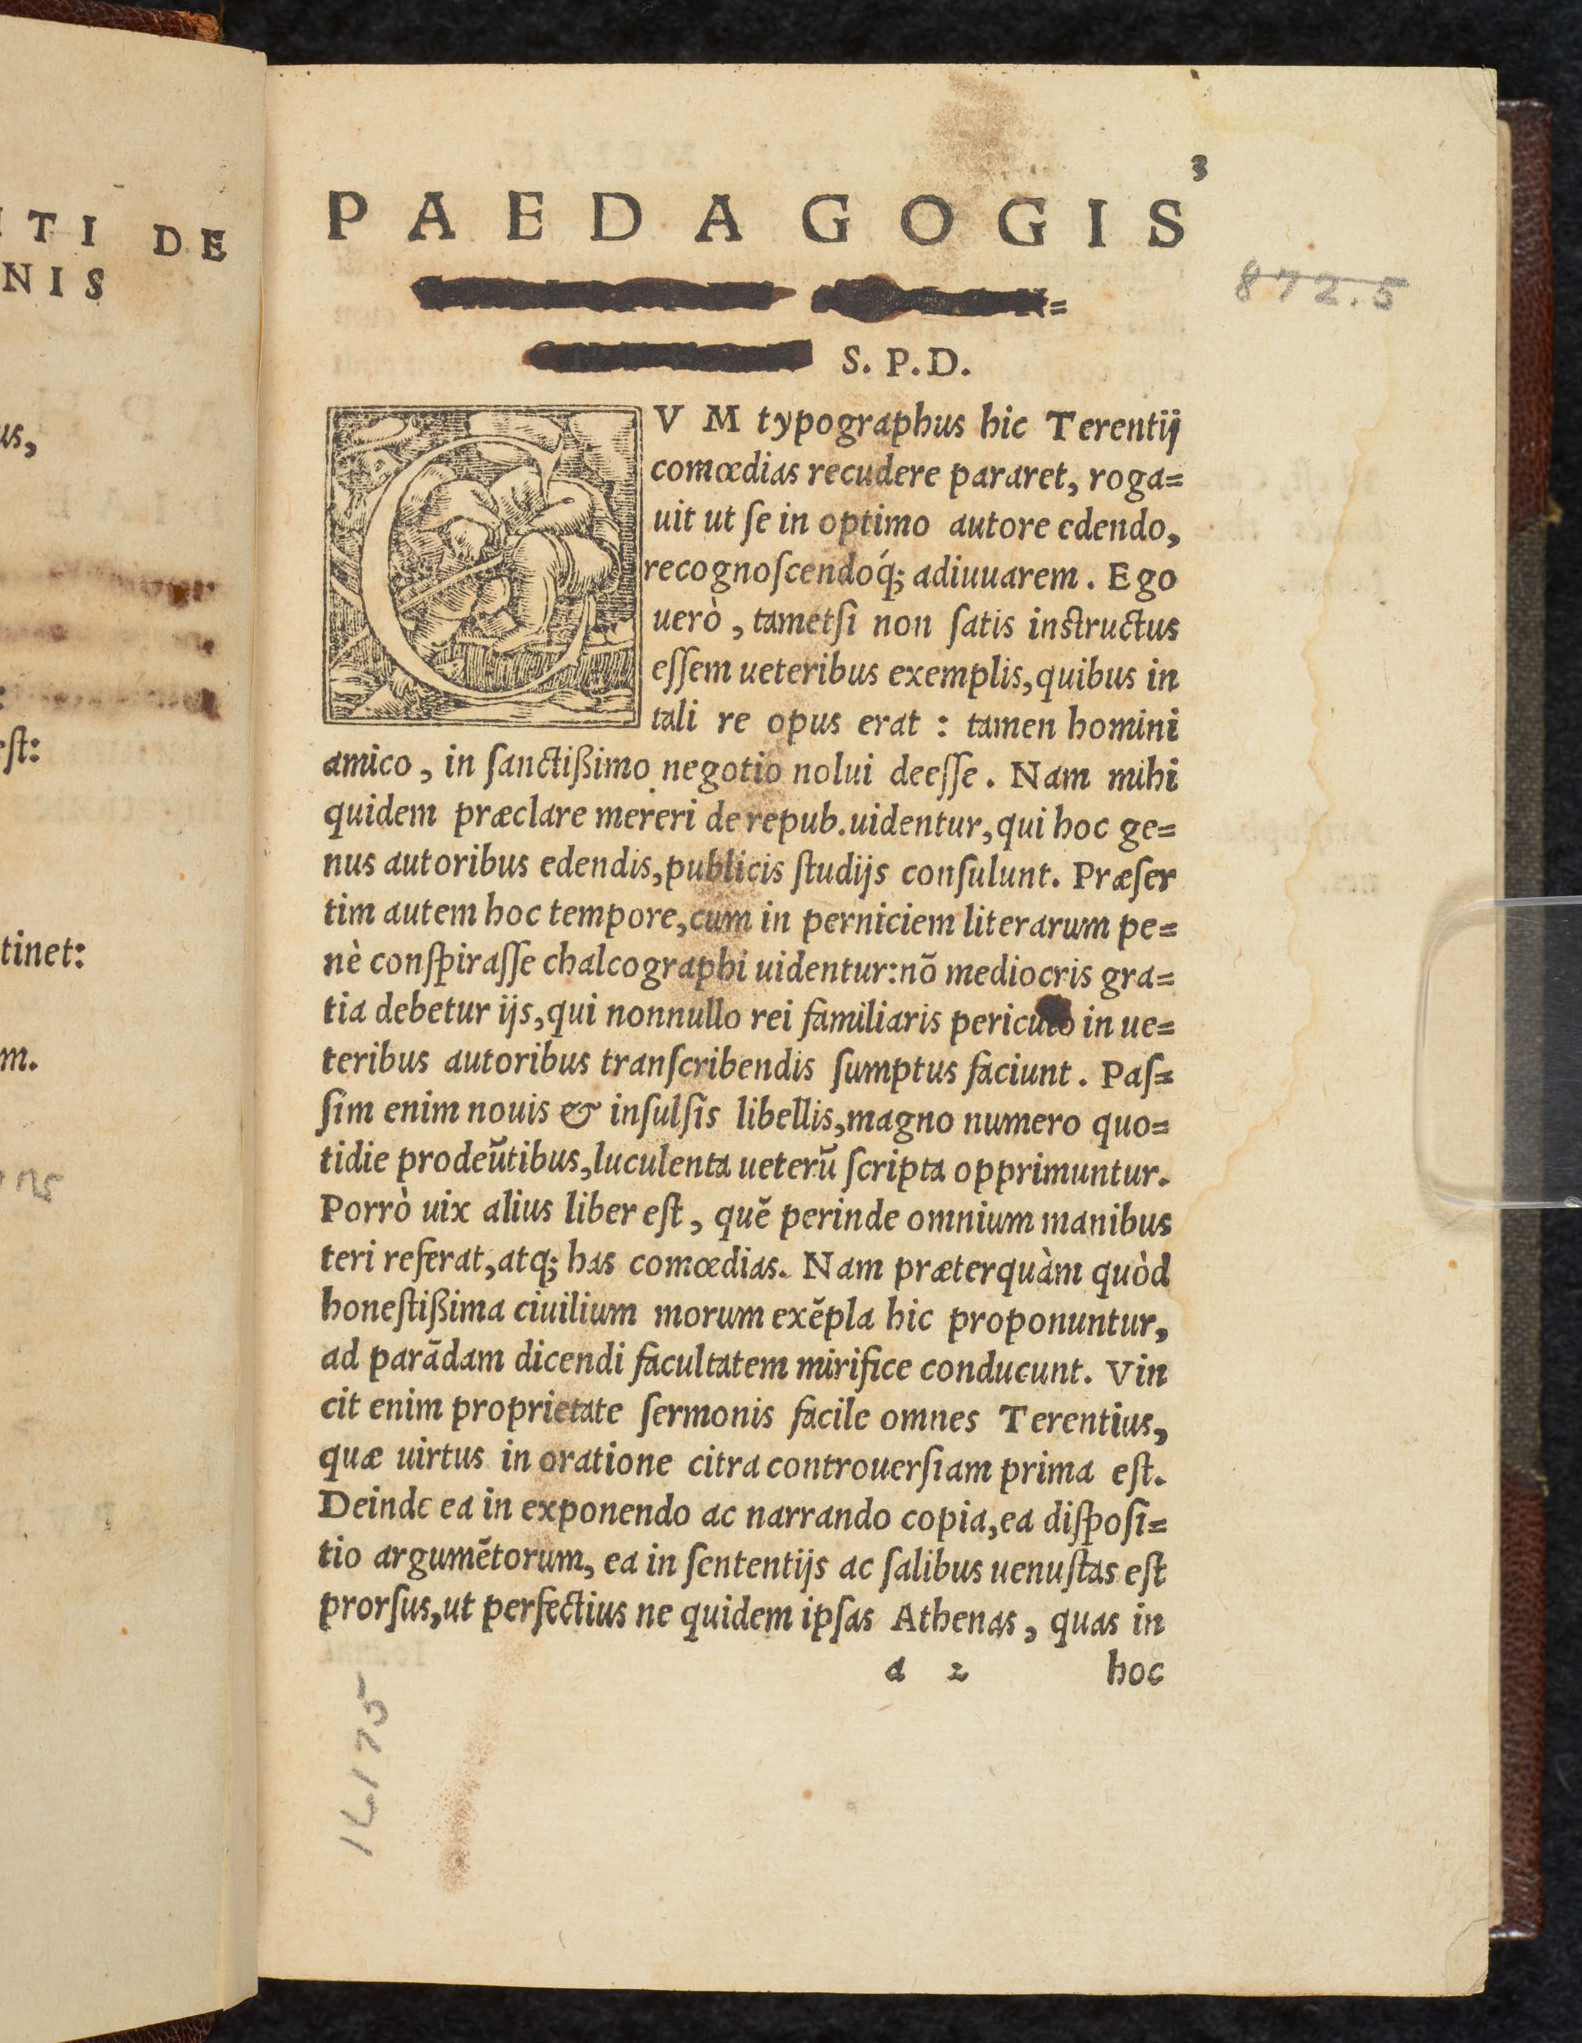 TI DE
NIS
us,
est:
tinet:
m.
3
PAEDAGOGIS
872.5
S. P. D.
CVM typographus hic Terentij
comœdias recudere pararet, roga=
uit ut ſe in optimo autore edendo,
recognoſcendoq́; adiuuarem. Ego
uerò, tametſi non ſatis instructus
eſſem ueteribus exemplis, quibus in
tali re opus erat : tamen homini
amico, in ſanctißimo negotio nolui deeſſe. Nam mihi
quidem præclare mereri de repub. uidentur, qui hoc ge=
nus autoribus edendis, publicis ſtudijs conſulunt. Præſer
tim autem hoc tempore, cum in perniciem literarum pe=
nè conſpiraſſe chalcographi uidentur: nõ mediocris gra=
tia debetur ijs, qui nonnullo rei familiaris periculo in ue=
teribus autoribus tranſcribendis ſumptus faciunt. Paſ=
ſim enim nouis & inſulſis libellis, magno numero quo=
tidie prodeũtibus, luculenta ueterũ ſcripta opprimuntur.
Porrò uix alius liber eſt, quẽ perinde omnium manibus
teri referat, atq; has comœdias. Nam præterquàm quòd
honeſtißima ciuilium morum exẽpla hic proponuntur,
ad parãdam dicendi facultatem mirifice conducunt. Vin
cit enim proprietate ſermonis facile omnes Terentius,
quæ uirtus in oratione citra controuerſiam prima eſt.
Deinde ea in exponendo ac narrando copia, ea diſpoſi=
tio argumẽtorum, ea in ſententijs ac ſalibus uenuſtas eſt
prorſus, ut perfectius ne quidem ipſas Athenas, quas in
a 2 hoc
16175